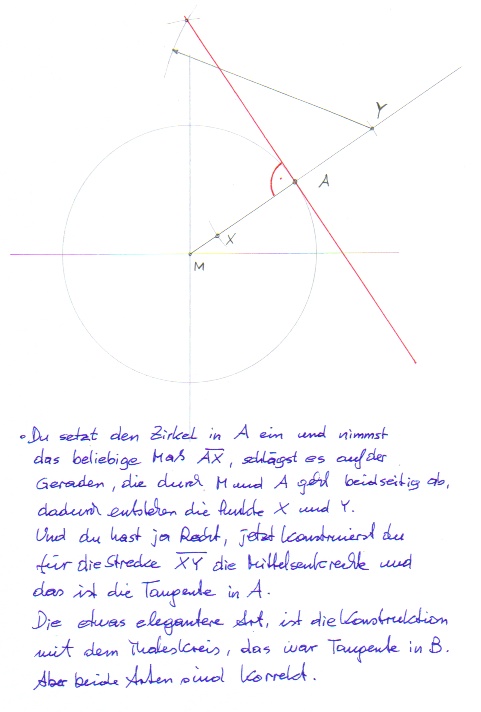 Y
A
X
M
• Du setzt den Zirkel in A ein und nimmst
das beliebige Maß AX, schlägst es auf der
Geraden, die durch M und A geht beidseitig ab,
dadurch entstehen die Punkte X und Y.
Und du hast ja Recht, jetzt konstruierst du
für die Strecke XY die Mittelsenkrechte und
das ist die Tangente in A.
Die etwas elegantere Art, ist die Konstruktion
mit dem Thaleskreis, das war Tangente in B.
Aber beide Arten sind korrekt.